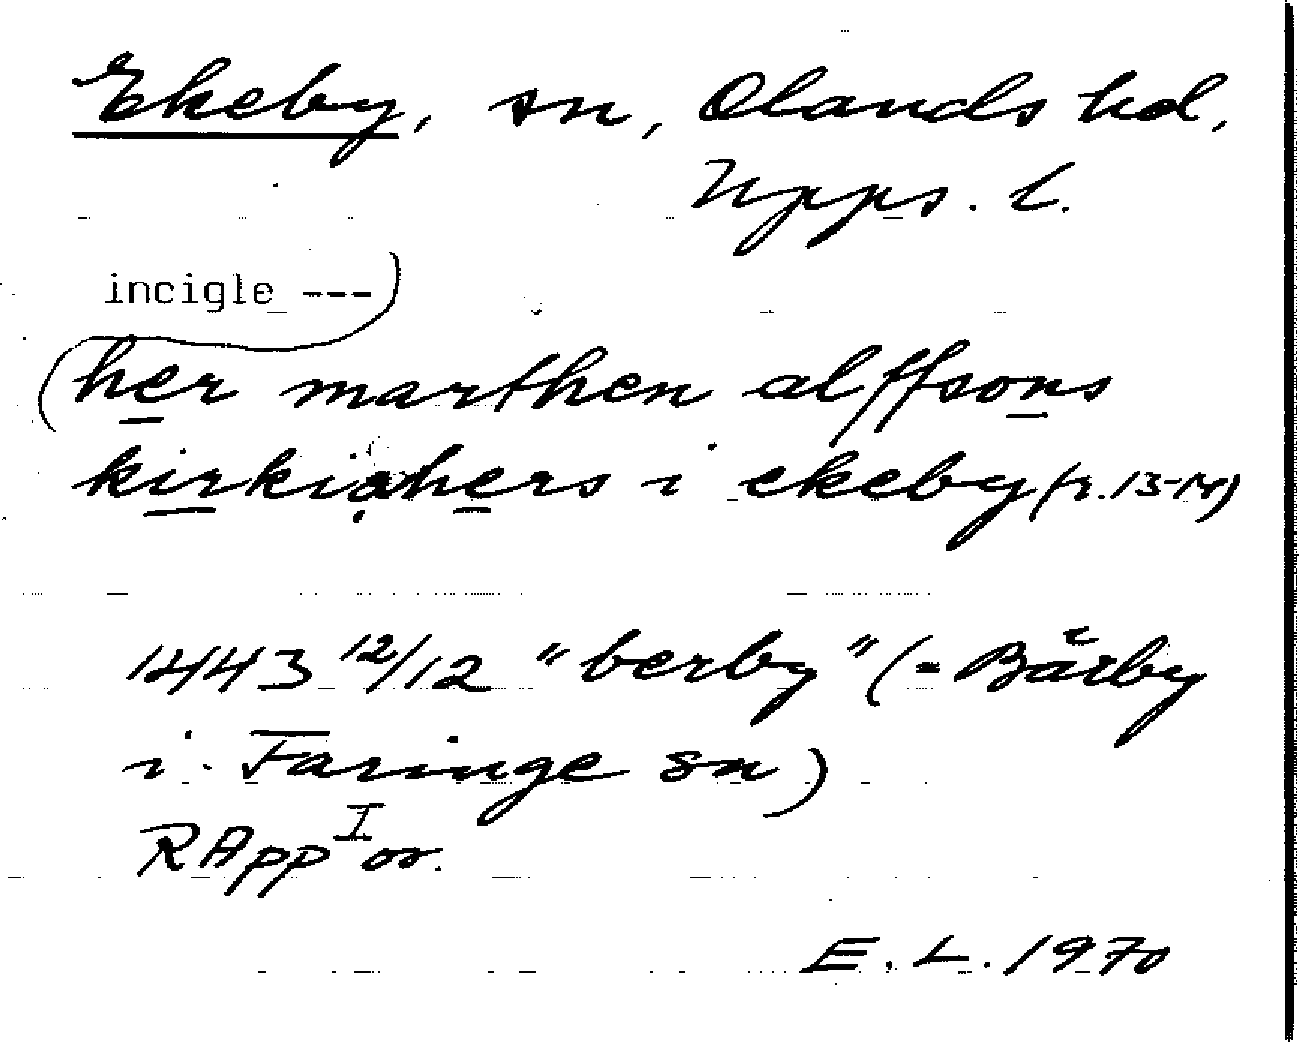 Ekeby, sn, Olands hd,
Upps. l.
incigle ---
her marthen alffsons
kirkiohers i ekeby (r. 13-14)
1443 12/12 "berby" (= Bärby
i Faringe sn)
RApp I or.
E. L. 1970